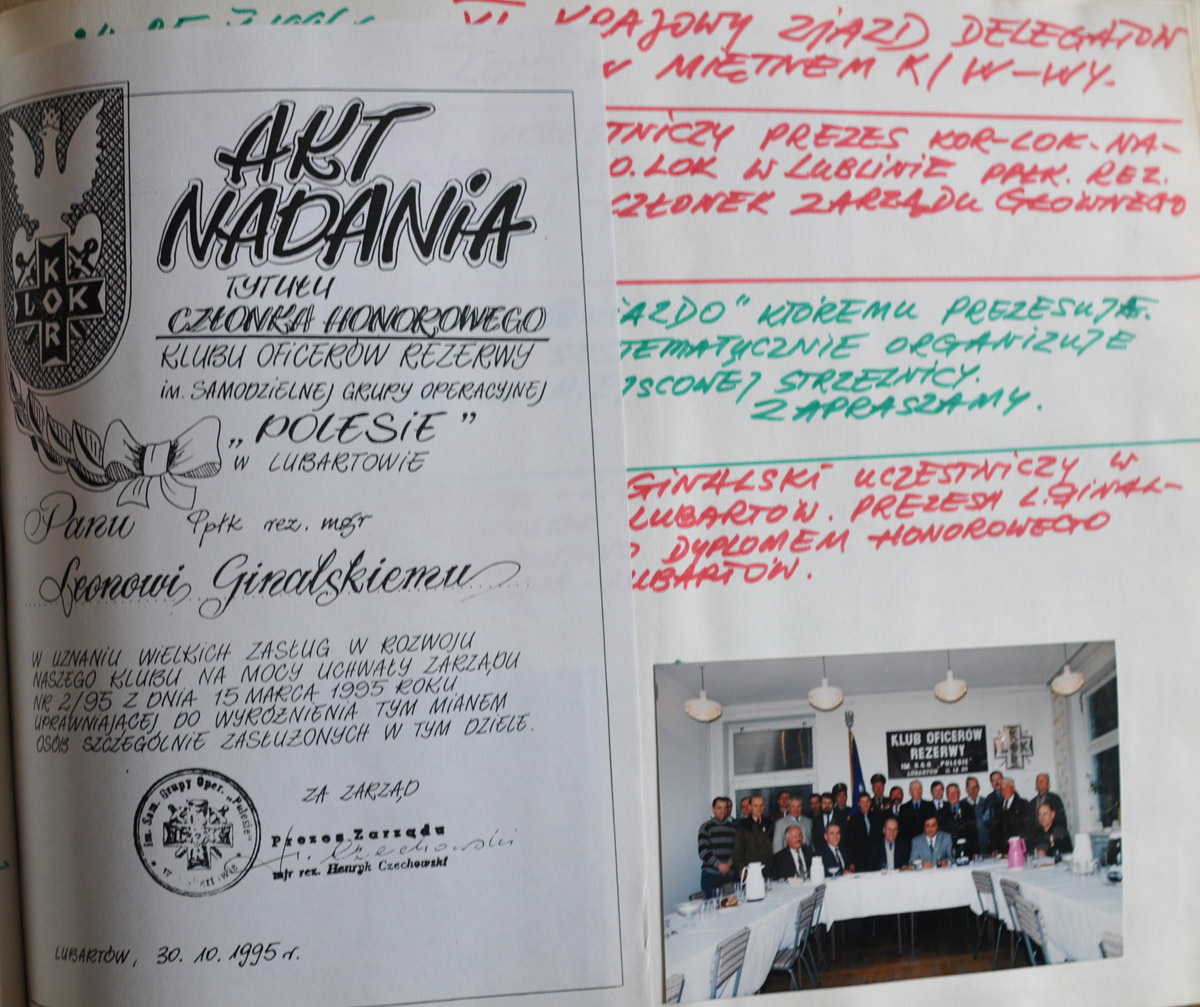 AKT
NADANIA
TYTUŁU
CZŁONKA HONOROWEGO
KLUBU OFICERÓW REZERWY
im. SAMODZIELNEJ GRUPY OPERACYJNEJ
„POLESIE”
W LUBARTOWIE
Panu ppłk rez. mgr
Leonowi Ginalskiemu
W UZNANIU WIELKICH ZASŁUG W ROZWOJU
NASZEGO KLUBU NA MOCY UCHWAŁY ZARZĄDU
NR 2/95 Z DNIA 15 MARCA 1995 ROKU
UPRAWNIAJĄCEJ DO WYRÓŻNIENIA TYM MIANEM
OSÓB SZCZEGÓLNIE ZASŁUŻONYCH W TYM DZIELE.
ZA ZARZĄD
Prezes Zarządu
mjr rez. Henryk Czechowski
im. Sam. Grupy Oper. „Polesie”
LUBARTÓW, 30. 10. 1995 r.
KOR
LOK
VI KRAJOWY ZJAZD DELEGATÓW
W MIĘTNEM K/W-WY.
TNICZY PREZES KOR-LOK-NA-
O.LOK W LUBLINIE PPŁK. REZ.
CZŁONEK ZARZĄDU GŁÓWNEGO
IAZDO" KTÓREMU PREZESUJE.
TEMATYCZNIE ORGANIZUJE
JSCOWEJ STRZELNICY.
ZAPRASZAMY.
GINALSKI UCZESTNICZY W
LUBARTÓW. PREZESA L.GINAL-
O DYPLOMEM HONOROWEGO
UBARTÓW.
KLUB OFICERÓW
REZERWY
IM. S.G.O. „POLESIE”